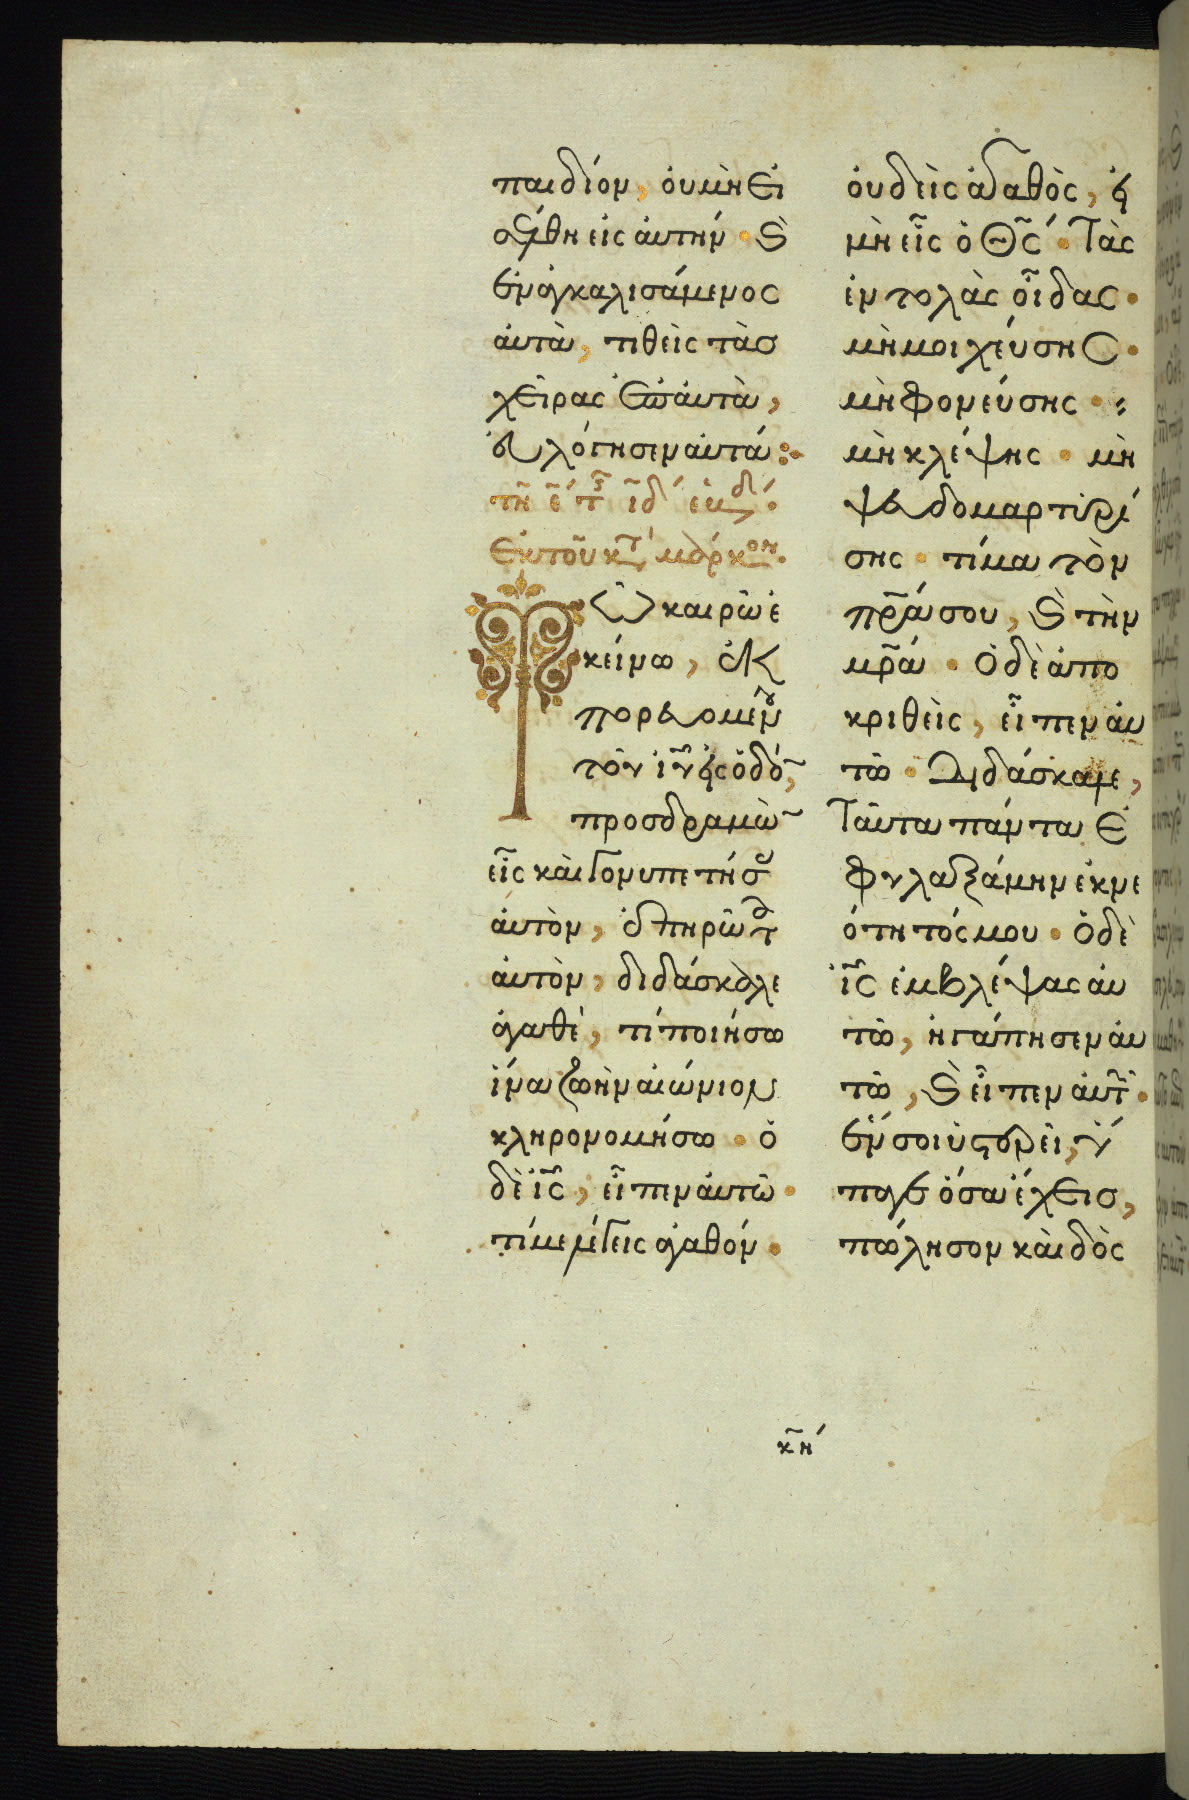 παιδίον, ὀυμὴ εἰ
σέλθη εἰς ἀυτήν · Καὶ
ἐναγκαλισάμενος
ἀυτὰ, τιθεὶς τὰσ
χεῖρας ἐπ' ἀυτὰ,
ἐυλόγησεν ἀυτά :·
τῆ ε̄ τῆς ῑδ ἑβδ.
Ἐκ τοῦ κατ μάρκον.
Τῶ καιρῶ ἐ
κείνω, ἐκ
πορευομένου
τὸν ἰν εἰς ὁδὸ̄,
προσδραμὼ̄
εἷς κὰι γονυπετήσ
ἀυτὸν, ἐπηρώτα
ἀυτὸν, διδάσκαλε
ἀγαθὲ, τί ποιήσω
ἵνα ζωὴν αἰώνιον
κληρονομήσω · ὁ
δὲ ις̄, εἶπεν ἀυτῶ ·
τί με λέγεις ἀγαθόν ·
ὀυδεὶς ἀγαθὸς, εἰ
μὴ εἷς ὁ Θς̄ · Τὰς
ἐντολὰς οἶδας ·
μὴ μοιχέυσης ·
μὴ φονέυσης ·
μὴ κλέψης · μὴ
ψευδομαρτιρί
σης · τίμα τὸν
πρ̄α σου, Καὶ τὴν
μρ̄α · Ὁ δὲ ἀπο
κριθεὶς, εἶπεν ἀυ
τῶ · Διδάσκαλε,
Ταῦτα πάντα ἐ
φυλαξάμην ἐκ νε
ότητός μου · Ὁ δὲ
ις̄ ἐμβλέψας ἀυ
τῶ, ἠγάπησεν ἀυ
τὸ, Καὶ εἶπεν ἀυτ ·
ἕν σοι ὑστερεῖ, ὕ
παγε ὅσα ἔχεισ,
πώλησον κὰι δὸς
κ̄η